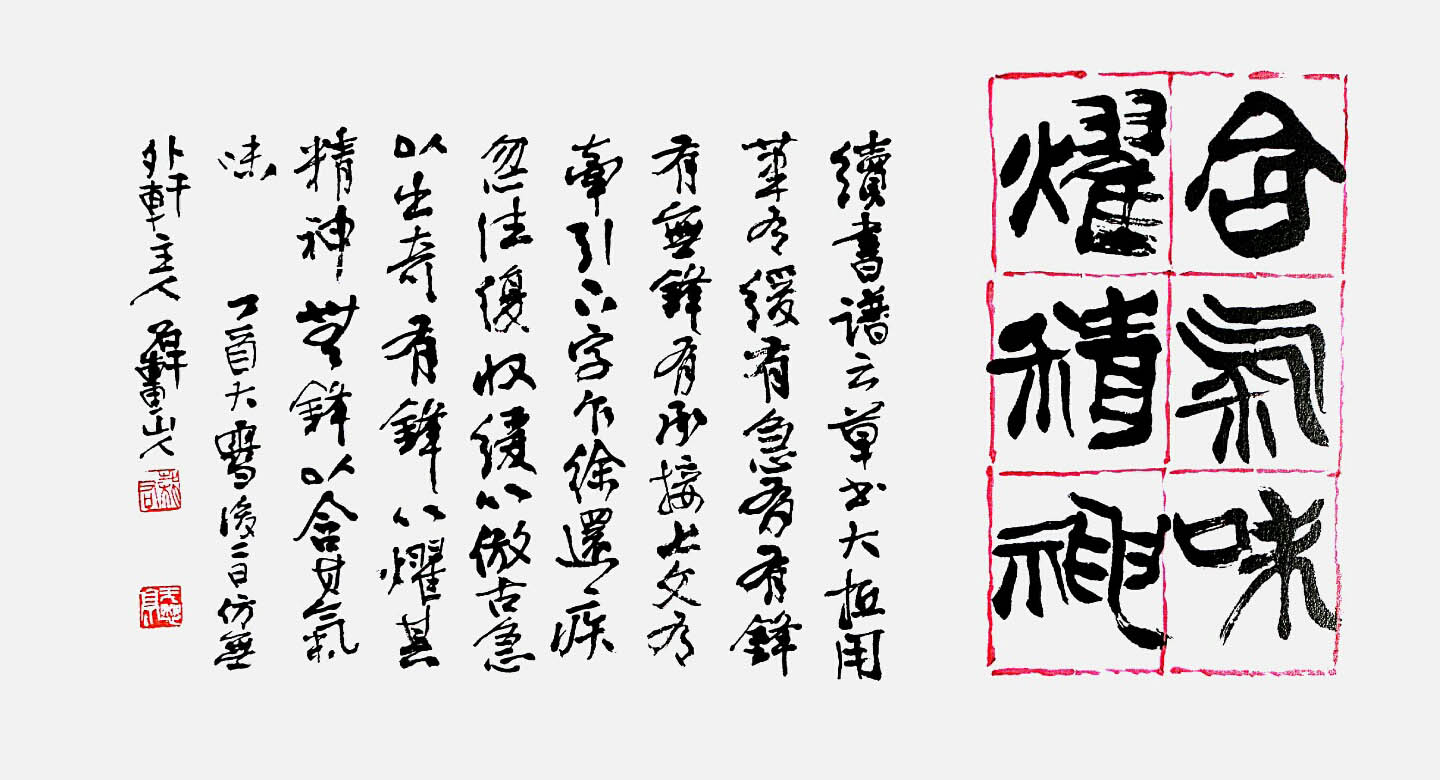 含氣味
燿精神
續書譜云草書大抵用
筆有緩有急有有鋒
有無鋒有承接上文有
牽引下字乍徐還疾
忽往復收緩以倣古急
以出奇有鋒以燿其
精神無鋒以含其氣
味 丁酉大雪後二日仿無
外軒主人 山人